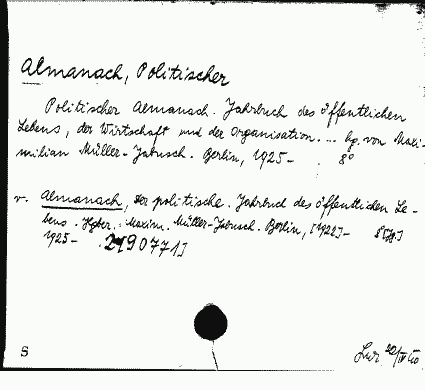 Almanach, Politischer
Politischer Almanach. Jahrbuch des öffentlichen
Lebens, der Wirtschaft und der Organisation. ... hg. von Maxi-
milian Müller-Jabusch. Berlin, 1925- 8°
v. Almanach, Der politische. Jahrbuch des öffentlichen Le-
bens. Hgbr.: Maxim. Müller-Jabusch. Berlin, [1922]-
1925-
S